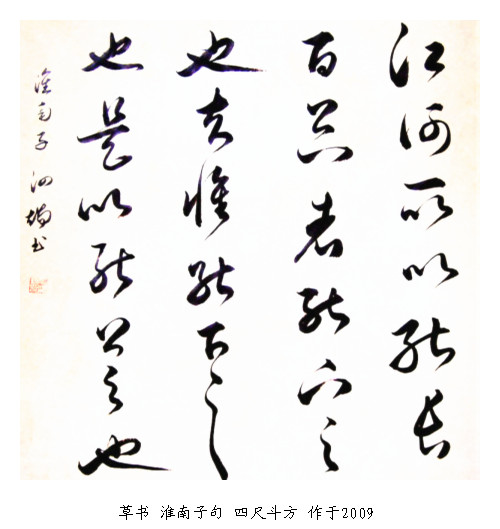 江河所以能长
百谷者能下之
也夫惟能下之
也是以能上之也
淮南子
草书 淮南子句 四尺斗方 作于2009